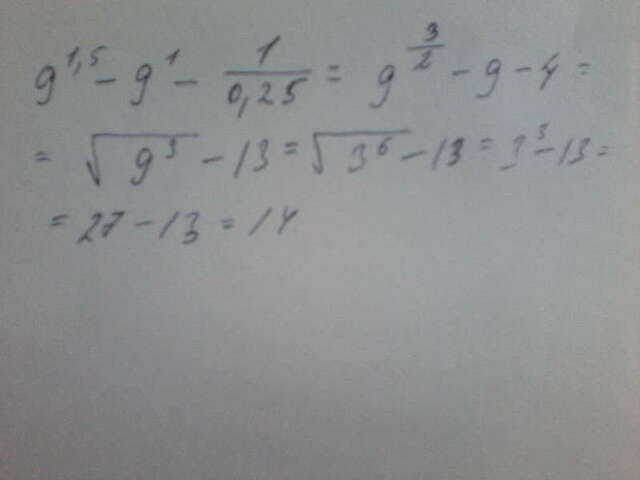 9^{1,5} - 9^1 - \frac{1}{0,25} = 9^{\frac{3}{2}} - 9 - 4 =
= \sqrt{9^3} - 13 = \sqrt{3^6} - 13 = 3^3 - 13 =
= 27 - 13 = 14